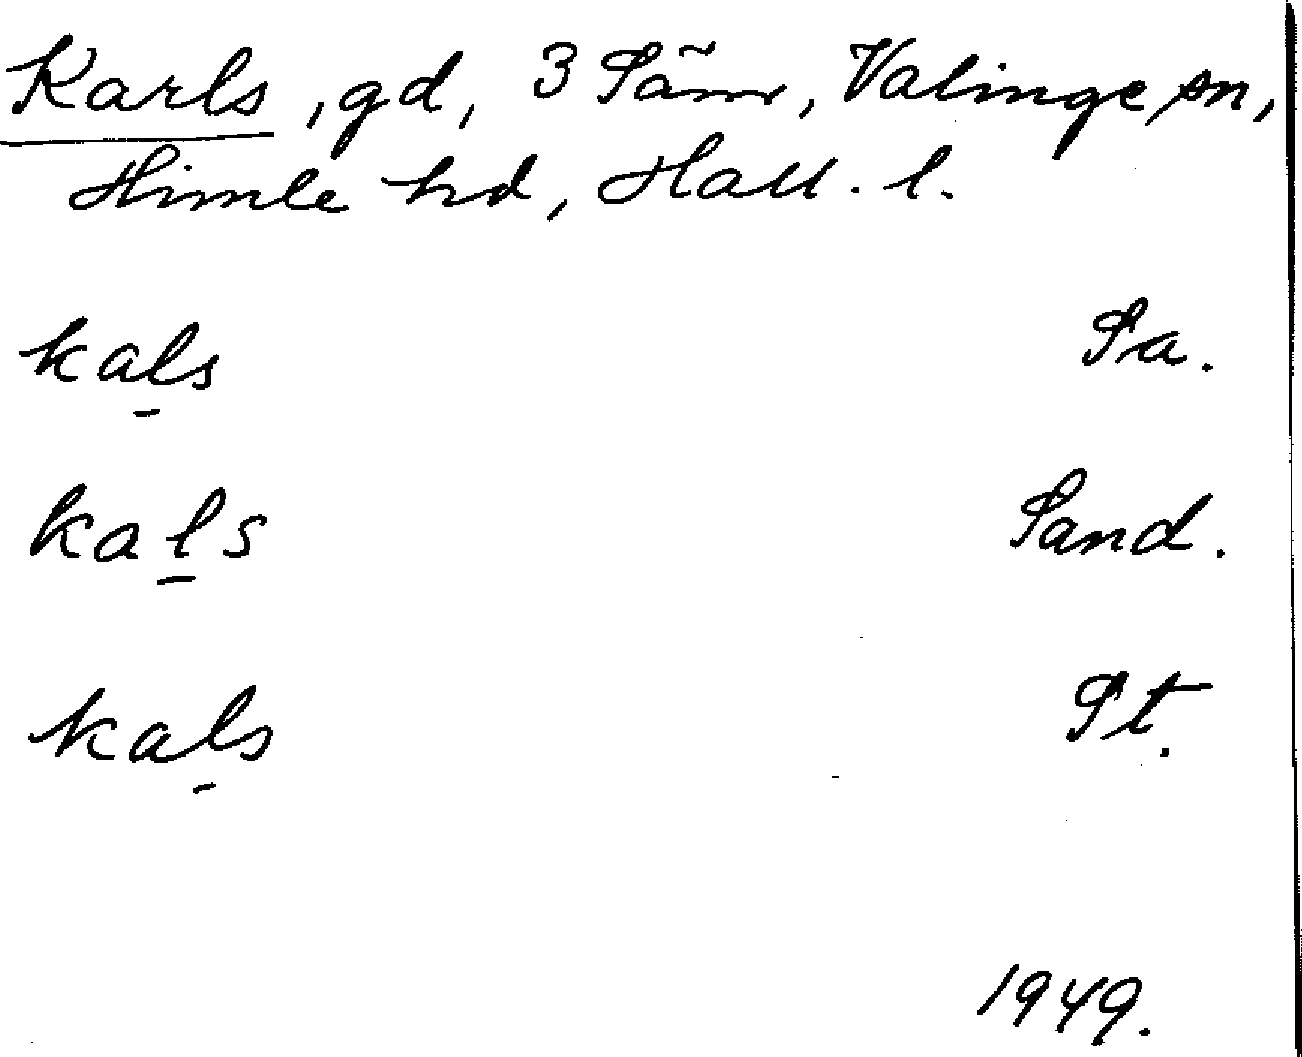 Karls, gd, 3 Säm, Valinge sn,
Himle hd, Hall. l.
kals Sa.
kals Sand.
kals St.
1949.